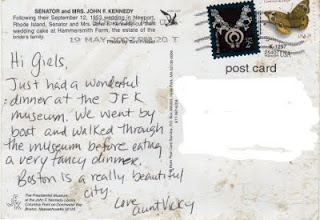 SENATOR and MRS. JOHN F. KENNEDY
Following their September 12, 1953 wedding in Newport,
Rhode Island, Senator and Mrs. John F. Kennedy cut their
wedding cake at Hammersmith Farm, the estate of the
bride's family.
19 MAY 2007 PM 20 T
Hi Girls,
Just had a wonderful
dinner at the JFK
museum. We went by
boat and walked through
the museum before eating
a very fancy dinner.
Boston is a really beautiful
city.
Love
Aunt Vicky
post card
The Presidential Museum
at the John F. Kennedy Library
Columbia Point on Dorchester Bay
Boston, Massachusetts